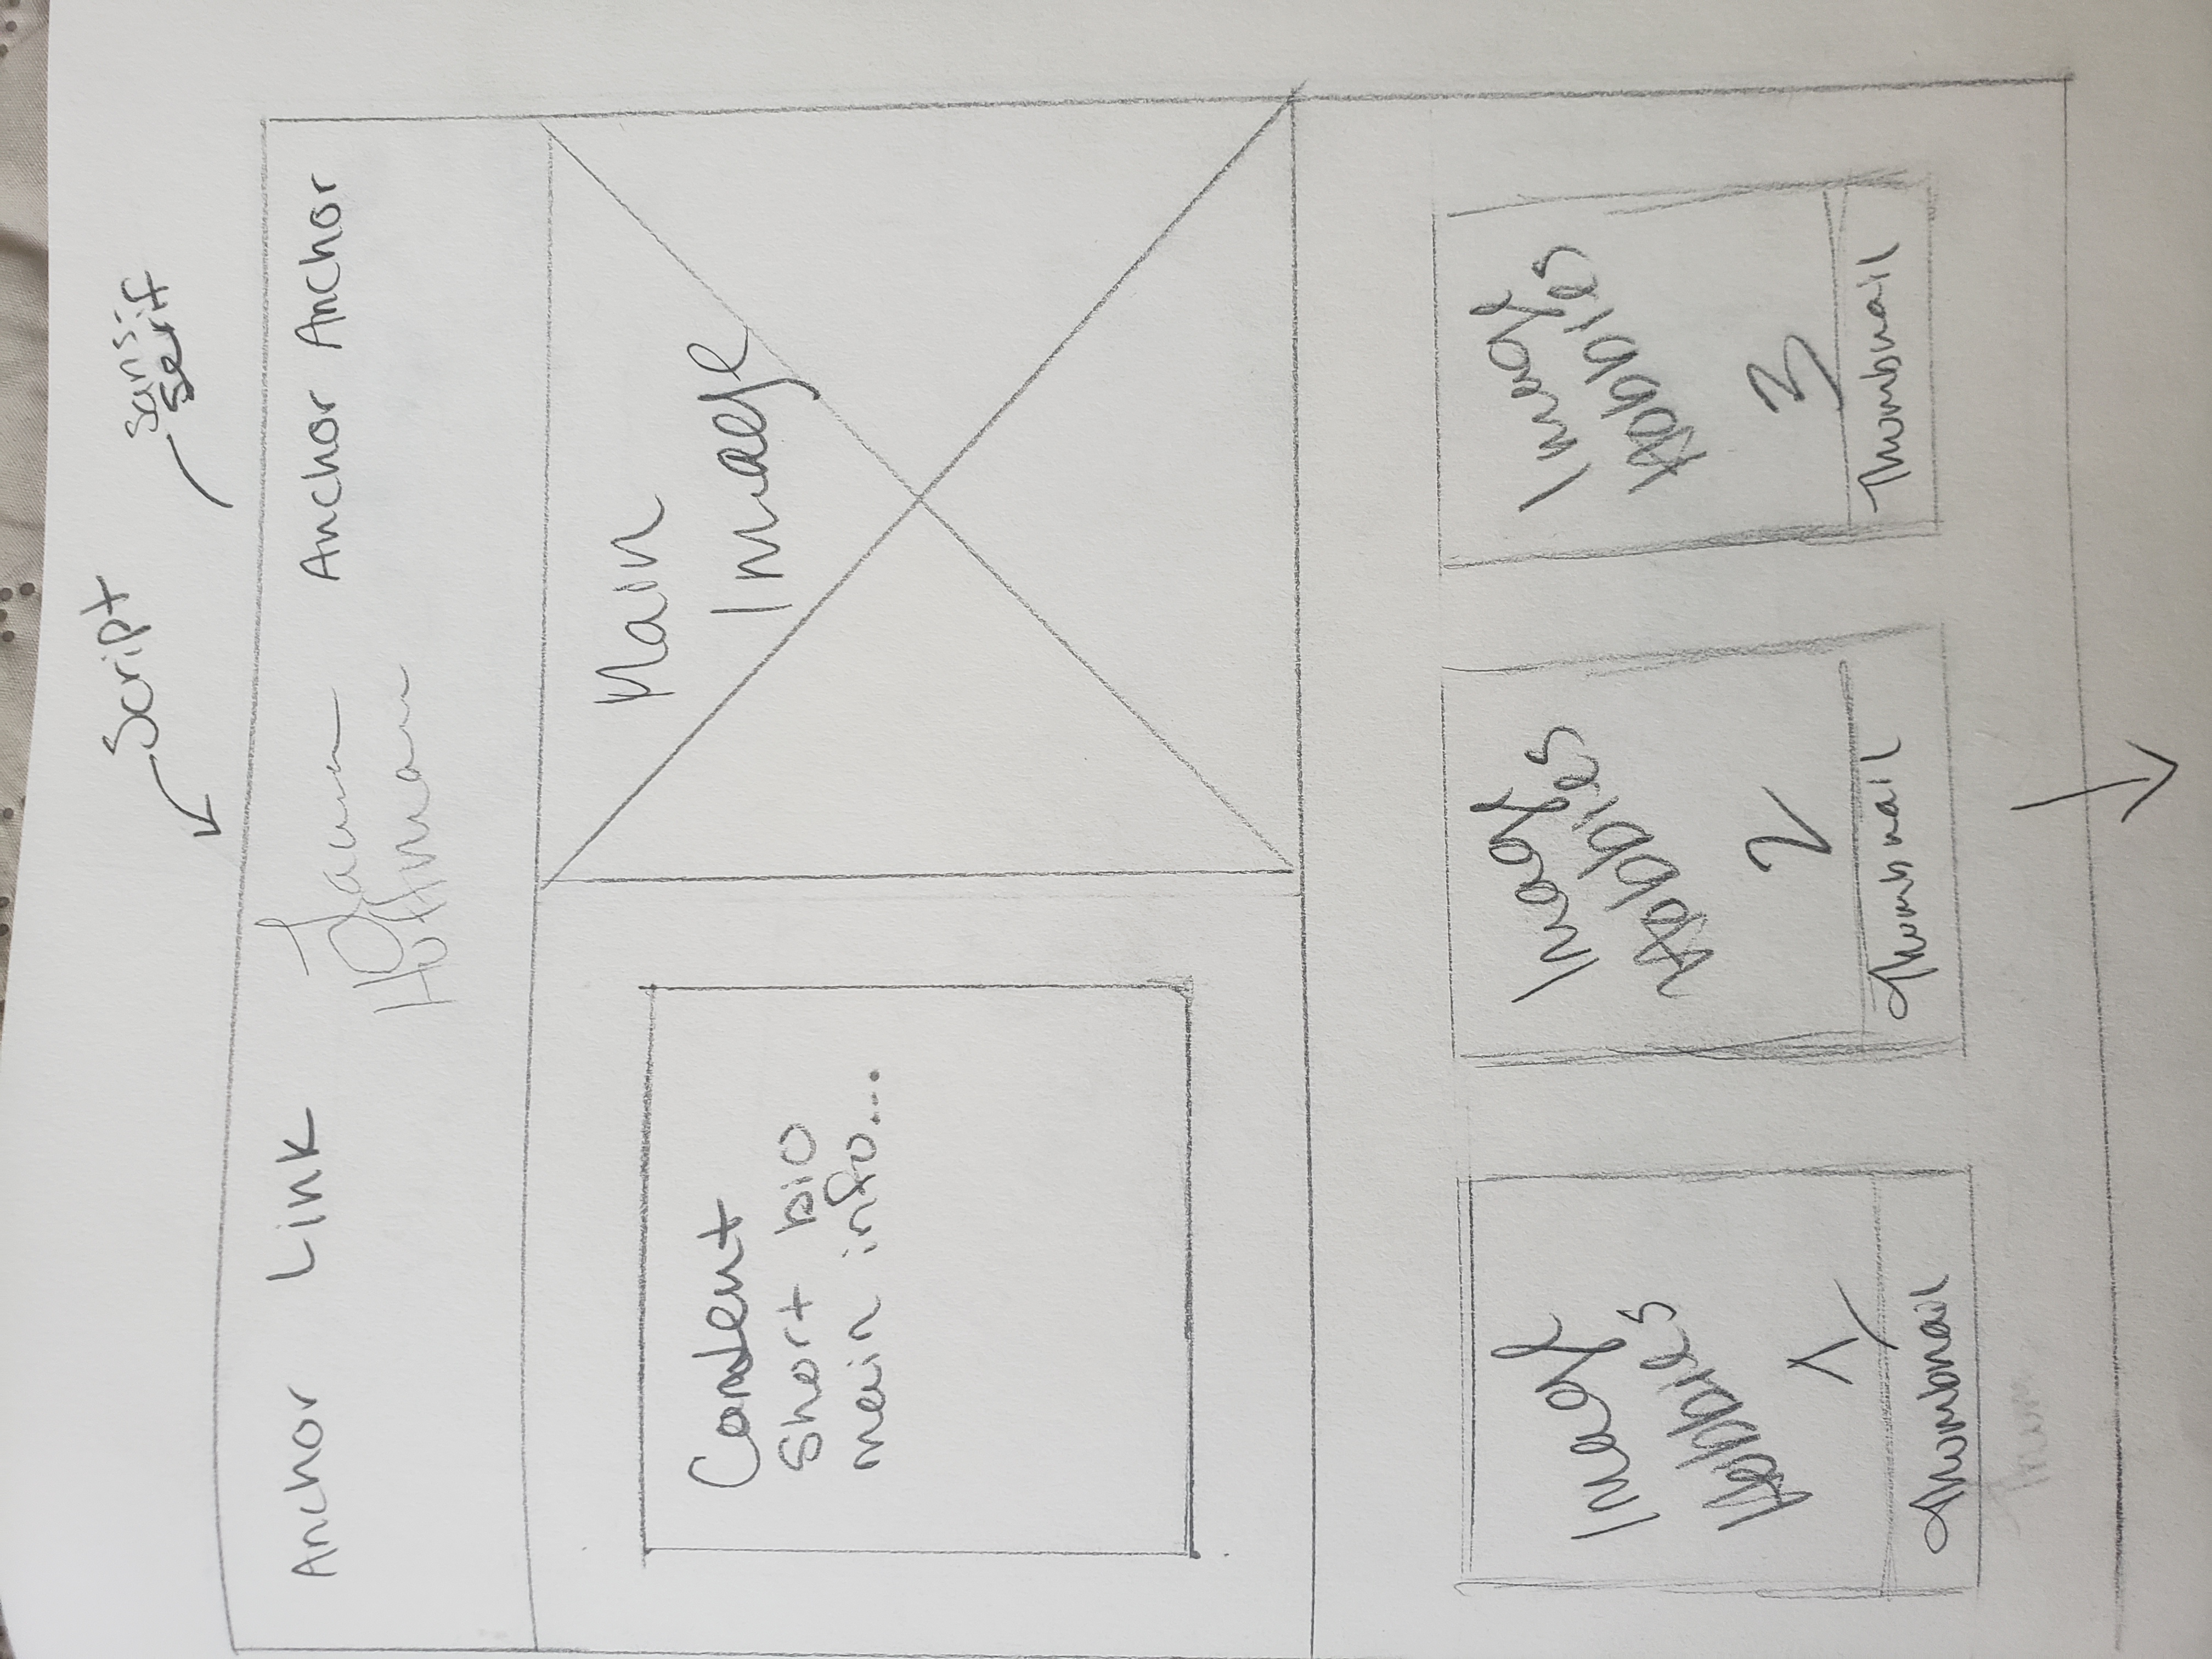 Script
sans-
serif
Anchor Link
Laura
Hoffman
Anchor Anchor
Content
Short bio
main info...
Main
Image
Image
Hobbies
1
Thumbnail
Image
Hobbies
2
Thumbnail
Image
Hobbies
3
Thumbnail
Thum